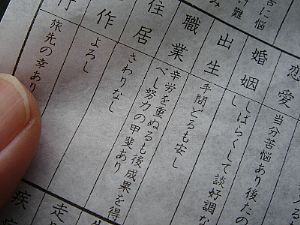 恋愛
当分苦悩あり後たの
婚姻
しばらくして談好調な
出生
手間どるも安し
職業
辛労を重ねるも後成果を得
べし努力の甲斐あり
住居
さわりなし
作
よろし
行
旅先の幸あり
走
疾